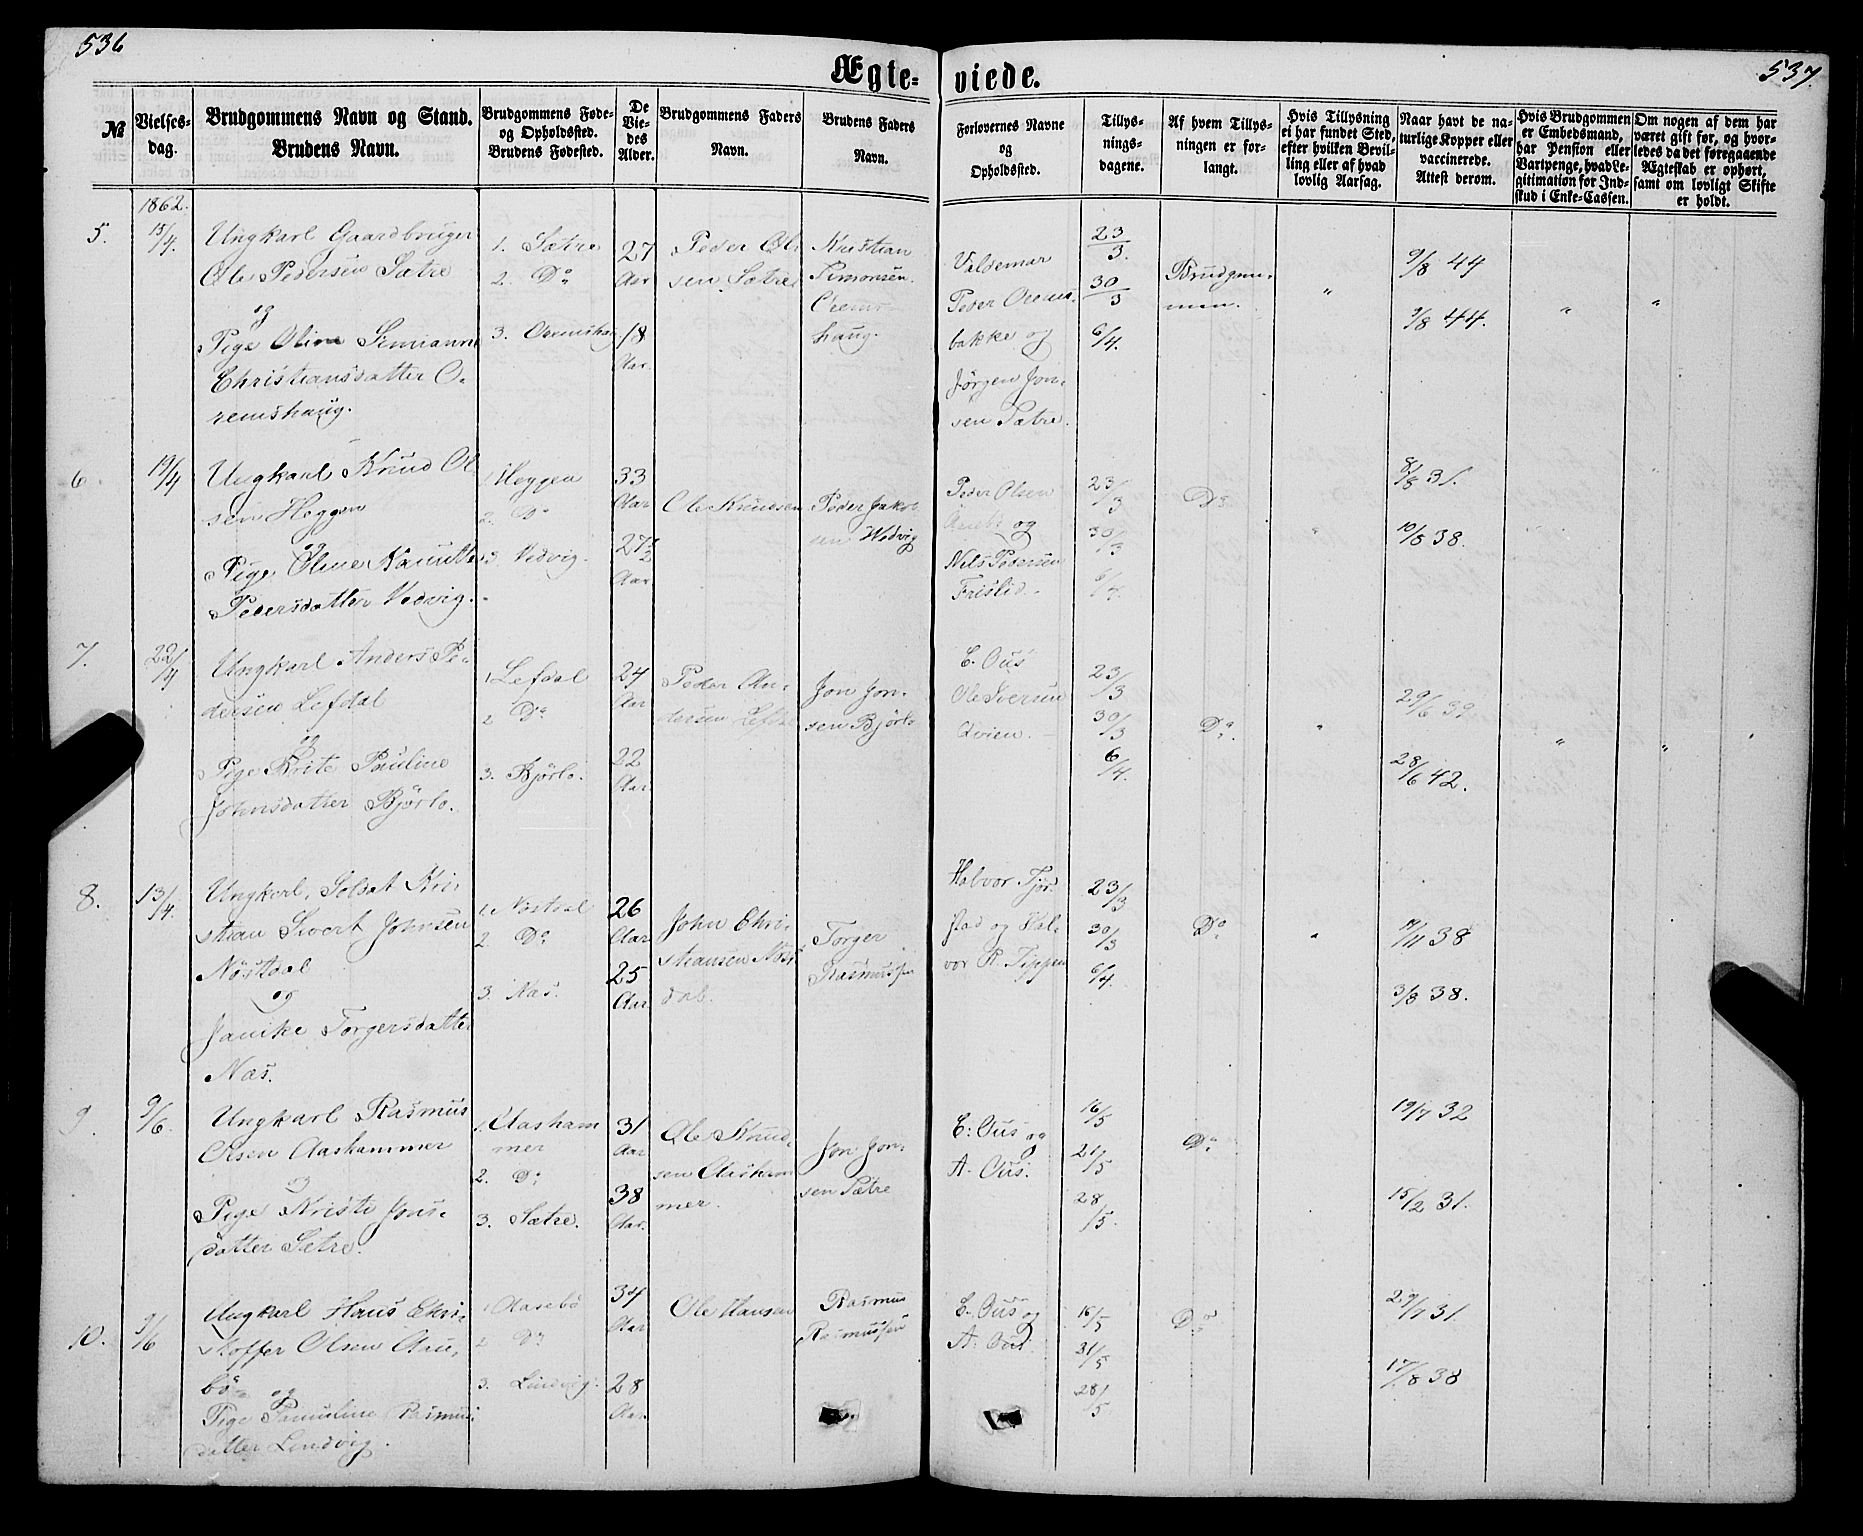 536
537.
Ægte-
viede.
No
Vielses-
dag.
Brudgommens Navn og Stand.
Brudens Navn.
Brudgommens Føde-
og Opholdssted.
Brudens Fødested.
De
Vie-
des
Alder.
Brudgommens Faders
Navn.
Brudens Faders
Navn.
Forlovernes Navne
og
Opholdssted.
Tillys-
nings-
dagene.
Af hvem Tillys-
ningen er for-
langt.
Hvis Tillysning
ei har fundet Sted,
efter hvilken Bevil-
ling eller af hvad
lovlig Aarsag.
Naar havt de na-
turlige Kopper eller
vaccinerede.
Attest derom.
Hvis Brudgommen
er Embedsmand,
har Pension eller
Vartpenge, hvad Le-
gitimation for Ind-
skud i Enke-Cassen.
Om nogen af dem har
været gift før, og hvor-
ledes da det foregaaende
Ægteskab er ophørt,
samt om lovligt Skifte
er holdt.
1862.
5.
15/4.
Ungkarl Gaardbruger
Ole Pedersen Sætre
og
Pige Oline Simianne
Christiansdatter O-
remshaug.
1. Sætre
2. Do
3. Oremshaug
27
Aar
18
Aar.
Peder Ol-
sen Sætre
Kristian
Simonsen
haug.
Valdemar
Peder
bakke og
Jörgen Jon-
sen Sætre.
23/3.
30/3
6/4.
Brudgom-
men.
"
9/8 44
9/8 44.
"
"
6.
19/4
Ungkarl Knud Ol-
sen Heggen
og
Pige Oline
Pedersdatter Vedvig.
1 Heggen
2. Do
3. Vedvig.
33
Aar
27 1/2
Aar
Ole Knudsen
Peder Jakob-
sen Vedvig
Peder Olsen
og
Nils Pedersen
Frislid.
23/3
30/3
6/4.
Do
"
8/8 31.
10/8 38.
7.
22/4
Ungkarl Anders Pe-
dersen Lefdal
og
Pige Brite Pauline
Johnsdatter Björlo.
1 Lefdal
2 Do
3. Björlo.
24
Aar
22
Aar.
Peder An-
dersen Lefdal
Jon Jon-
sen Björlo
E. Ous
Ole Iversen
Qvien.
23/3
30/3
6/4.
Do.
"
29/6 39
28/6 42.
"
"
8.
13/4.
Ungkarl, Soldat Kri-
stian Sivert Johnsen
Nöstdal
og
Janike Torgersdatter
Næs.
1. Nöstdal
2 Do
3. Næs.
26
Aar
25
Aar
John Chri-
stiansen Nöst-
dal.
Torger
Rasmussen
Halvor Tjör-
stad og Hal-
vor R. Tippen
23/3
30/3
6/4.
Do
"
19/11 38
3/8 38.
9.
9/6.
Ungkarl Rasmus
Olsen Aashammer
og
Pige Kristi Jons-
datter Sætre.
1. Aasham
mer
2. Do
3. Sætre.
31
Aar
38
Aar.
Ole Knud-
sen Aasham
mer.
Jon Jon-
sen Sætre
E. Ous og
A. Ous.
16/5
21/5
28/5.
Do
19/7 32
15/2 31.
10.
9/6
Ungkarl Hans Chri-
stoffer Olsen Aase-
bö
og
Pige Pauline Rasmus-
datter Lindvig.
1 Aasebö
2 Do
3. Lindvig.
34
Aar
28
Aar.
Ole Hansen
Rasmus
Rasmussen
E. Ous og
A. Ous.
16/5
21/5
28/5
Do
29/7 31.
17/8 38